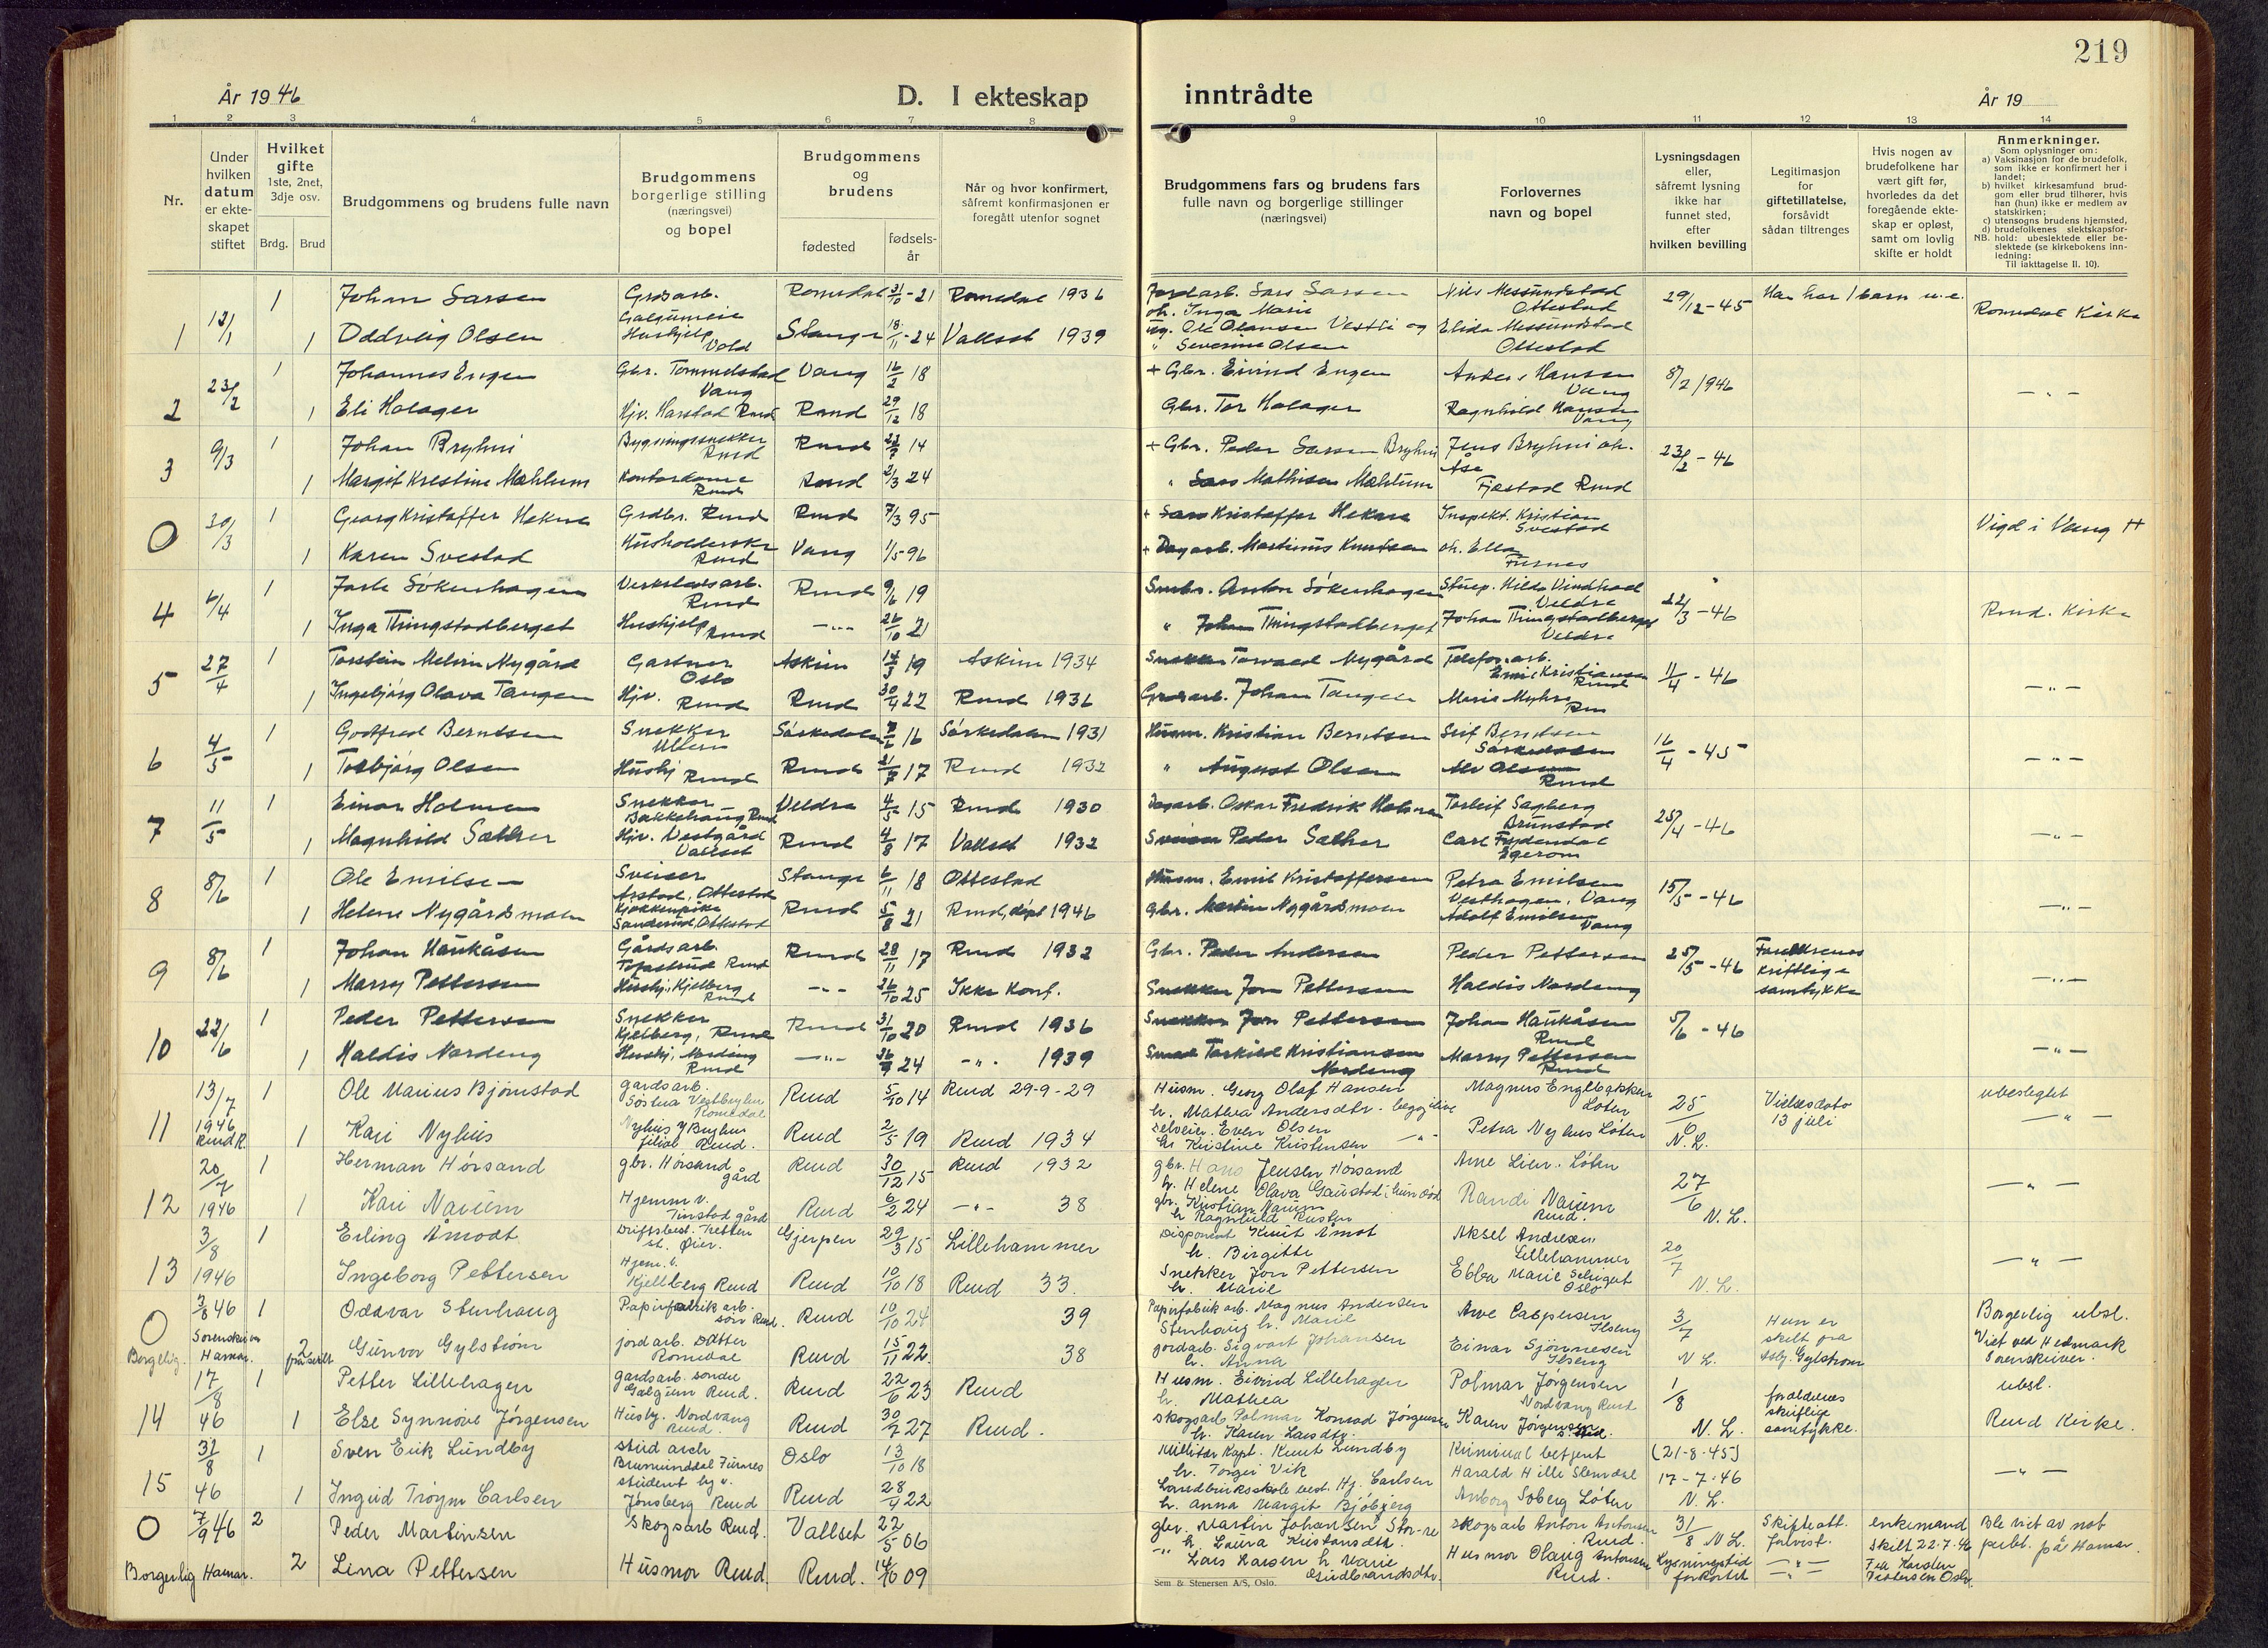 219
År 1946
D. I ekteskap
inntrådte
År 19
1 2 3 4 5 6 7 8 9 10 11 12 13 14
Nr.
Under hvilken datum er ekte-skapet stiftet
Hvilket gifte 1ste, 2net, 3dje osv.
Brdg. Brud
Brudgommens og brudens fulle navn
Brudgommens borgerlige stilling (næringsvei) og bopel
Brudgommens og brudens
fødested
fødsels-år
Når og hvor konfirmert, såfremt konfirmasjonen er foregått utenfor sognet
Brudgommens fars og brudens fars fulle navn og borgerlige stillinger (næringsvei)
Forlovernes navn og bopel
Lysningsdagen eller, såfremt lysning ikke har funnet sted, efter hvilken bevilling
Legitimasjon for giftetillatelse, forsåvidt sådan tiltrenges
Hvis nogen av brudefolkene har vært gift før, hvorledes da det foregående ekte-skap er opløst, samt om lovlig skifte er holdt
Anmerkninger.
Som oplysninger om:
a) Vaksinasjon for de brudefolk, som ikke er konfirmert her i landet;
b) hvilket kirkesamfund brud-gom eller brud tilhører, hvis han (hun) ikke er medlem av statskirken;
c) utensogns brudens hjemsted,
d) brudefolkenes slektskapsfor-hold: ubeslektede eller be-slektede (se kirkebokens inn-ledning:
NB.
Til iakttagelse II. 10).
1 12/1 1 Johan Larsen Romedal 31/10-21 Romedal 1936 29/12-45 Han har 1 barn u.e. Romedal Kirke
1 Oddveig Olsen Hushjelp Vold Stange 18/11-24 Vallset 1939 Elida Messundstad Ottestad
2 23/2 1 Johannes Engen Gbr. Tommelstad Vang Vang 16/2 18 + Gbr. Eivind Engen Anders Hansen Vang 8/2 1946 — " —
1 Eli Holager Hjv. Harstad Rmd Romd 29/12 18 Gbr. Tor Holager Ragnhild Hansen Vang
3 9/3 1 Johan Bryhni Bygningssnekker Rmd Rmd 14 + Gbr. Peder Larsen Bryhni Jens Bryhni oh. Åse 23/2-46
1 Margit Krestine Mæhlum Kontordame Rmd Romd 2/3 24 " Lars Mathisen Mæhlum Fjæstad Rmd
0 30/3 1 Georg Kristoffer Hekne Grdbr. Rmd Rmd 7/3 95 + Lars Kristoffer Hekne Inspekt. Kristian Svestad Vigd i Vang
1 Karen Svestad Husholderske Rmd Vang 1/5 96 + Dagarb. Martinius Knutsen oh. Ella Furnes
4 6/4 1 Jarle Sökenhagen Verkstedsarb. Rmd Rmd 9/6 19 Smbr. Anton Sökenhagen Veldre 22/3-46 Rmd. Kirke
1 Inga Thingstadberget Hushjelp Rmd — " — 26/10 21 " Johan Thingstadberget Johan Thingstadberget Veldre
5 27/4 1 Torstein Melvin Nygård Gartner Oslo Askim 14/3 19 Askim 1934 Snekker Torvald Nygård Telefonarb. Emil Kristiansen Rmd 11/4-46 — " —
1 Ingebjörg Olava Tangen Hjv. Rmd Rmd 30/4 22 Rmd 1936 Grdsarb. Johan Tangen Maria Myhre
6 4/5 1 Godtfred Berntsen Snekker Ullern Sörkedalen 16 Sörkedalen 1931 Husm. Kristian Berntsen Leif Berntsen Sörkedalen 16/4-45 — " —
1 Torbjörg Olsen Hushj Rmd Rmd 17 Rmd 1932 " August Olsen Alv Olsen Rmd
7 11/5 1 Einar Holmen Snekker Bakkehaug Rmd Veldre 4/5 15 Rmd 1930 Dagarb. Oskar Fredrik Holmen Torleif Sagberg Brunstad 25/4-46 — " —
1 Magnhild Sæther Hjv. Vestgård Vallset Rmd 4/8 17 Vallset 1932 Sveiser Peder Sæther Carl Fredendal
8 8/6 1 Ole Emilsen Sveiser Ottestad Stange 6/11 18 Ottestad Husm. Emil Kristoffersen Petra Emilsen Vesthagen, Vang 15/5-46 — " —
1 Helene Nygårdsmoen Kjøkkenpike Sanderud, Ottestad Rmd 5/8 21 Rmd, døpt 1946 Gbr. Martin Nygårdsmoen Adolf Emilsen Vang
9 8/6 1 Johan Haukåsen Gårdsarb. Rmd Rmd 28/11 17 Rmd 1932 Gbr. Peder Andersen Peder Pettersen 25/5-46 Foreldrenes skriftlige samtykke — " —
1 Marry Pettersen Hushj. Kjelberg Rmd — " — 26/10 25 Ikke Konf. Snekker Jon Pettersen Haldis Nordeng
10 22/6 1 Peder Pettersen Snekker Kjelberg, Rmd Rmd 31/10 20 Rmd 1936 Snekker Jon Pettersen Johan Haukåsen Rmd 5/6-46 — " —
1 Haldis Nordeng Hushj. Nordeng Rmd — " — 24 — " — 1939 Smed Torkild Kristiansen Nordeng Marry Pettersen Rmd
11 13/7 1946 Rmd K. 1 Ole Marius Bjørnstad gardsarb. Romedal Rmd 5/10 14 Rmd 29-9-29 Husm. Georg Olaf Hansen h. Mathea Andersdtr. Magnus Englbakken Løten 25/6 N.L. Vielsesdato 13 juli ubeslegtet — " —
1 Kari Nyhus Rmd 2/5 19 Rmd 1934 Selveier Even Olsen h. Kristine Kristensen — " — Petra Nyhus Løten
12 20/7 1946 1 Herman Hørsand gbr. Hørsand gård Rmd 30/12 15 Rmd 1932 gbr. Hans Jensen Hørsand h. Helene Olava Gaustad Arne Lier. Løten 27/6 N.L. — " —
1 Kari Narum Hjemm v. Tinstad gård Rmd 6/2 24 — " — 38 gbr. Kristian Narum h Ragnhild Randi Narum Rmd.
13 3/8 1946 1 Erling Åmodt Driftsbest. Tretten st. Øier. Gjerpen 29/3 15 Lillehammer Disponent Knut Åmot h. Birgitte Aksel Andresen Lillehammer 20/7 N.L. — " —
Ingeborg Pettersen Hjem. v. Kjellberg Rmd Rmd 10/10 18 Rmd 33. Snekker Jon Pettersen h. Marie Ebba Marie Oslo
0 3/8 46 1 Oddvar Stenhaug Papirfabrik arb. Rmd. Rmd 10/10 24 39 Papirfabrik arb. Magnus Andersen Stenhaug h. Marie Arve Caspersen Ilseng 3/7 N L. Hun er skilt fra Gylstrøm Borgerlig ubsl. Viet ved Hedmark Sorenskriver.
Borgelig. Sorenskriver Hamar. 2 fraskilt Gunvor Gylstrøm jordarb. Datter Romedal Rmd 15/11 22. 38 jordarb. Sigvart Johansen h. Anna Einar Sjønnesen Ilseng
14 17/8 46 1 Petter Lillehagen gardsarb. søndre Galgum Rmd. Rmd 22/6 23 Rmd Husm. Eivind Lillehagen h. Mathea Polmar Jørgensen Nordvang Rmd 1/8 N.L. foreldrenes skriftlige samtykke. ubsl. Rmd Kirke.
1 Else Synnøve Jørgensen Hushj. Nordvang Rmd. Rmd 30/7 27 Rmd. skogsarb Polmar Konrad Jørgensen h. Karen Larsdtr. Karen Jørgensen
15 31/8 46 1 Sven Erik Lundby stud arch Brumunddal Furnes Oslo 13/10 18 Militær Kapt. Knut Lundby h. Torger Vik Kriminal betjent Harald Hille (21-8-45) 17-7-46 N.L. — " —
1 Ingrid Trøym Carlsen student Jønsberg Rmd Rmd 28/4 22 Landbruksskole best. Hj. Carlsen h. Anna Margit Søberg Løten
0 7/9 46 2 Peder Martinsen Skogsarb Rmd. Vallset 22/5 06 gbr. Martin Johansen h. Laura Kristansdtr. skogsarb Anton Antonsen Rmd. 31/8 N L. Skifteatt. forevist. enkemand Ble viet av not publ. på Hamar.
Borgerlig Hamar. 2 Lina Pettersen Husmor Rmd. Rmd. 14/10 09 Lars Larsen h Marie Gudbrandsdtr. Husmor Olaug Antonsen Rmd. Lysningstid forkortet — " — Skilt 22-7-46 Karsten Pettersen Oslo.
Sem & Stenersen A/S, Oslo.